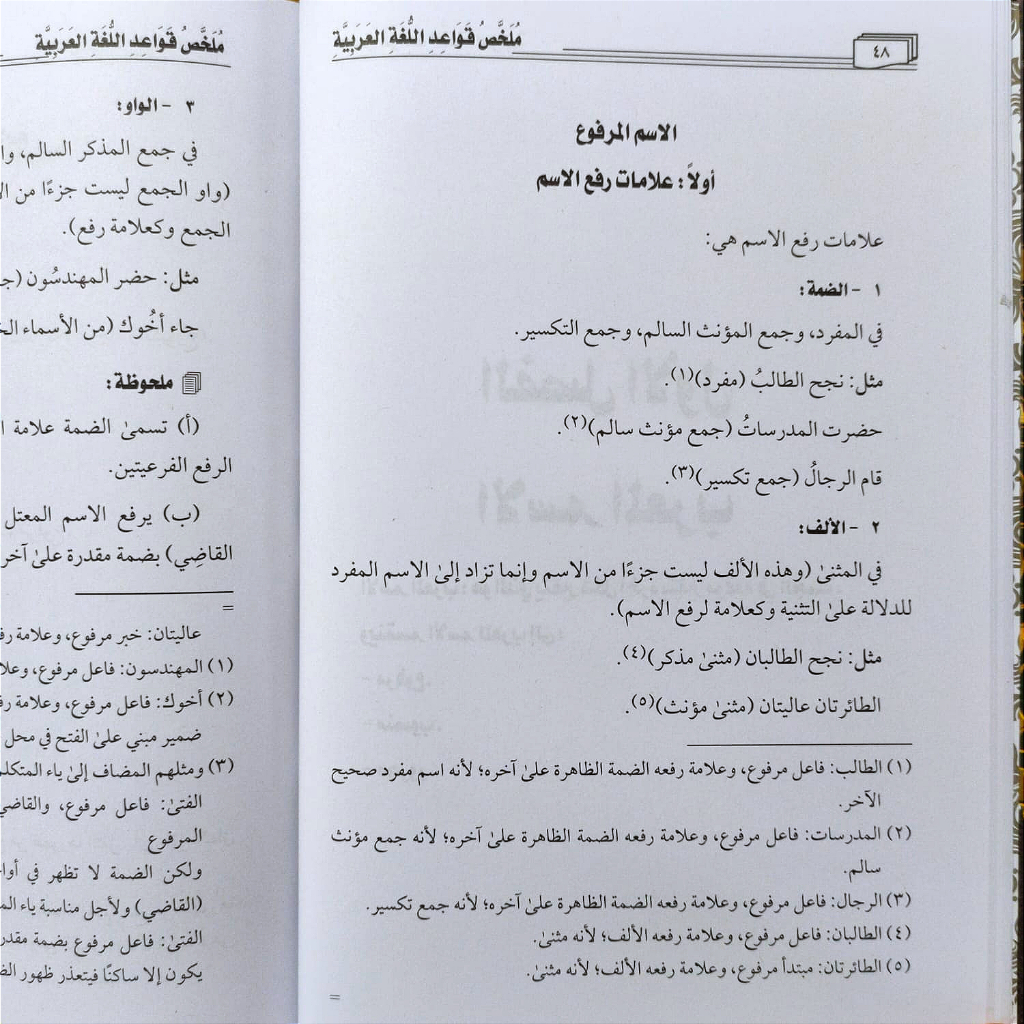 مُلَخَّصُ قَوَاعِدِ اللُّغَةِ العَرَبِيَّةِ
٤٨
الاسم المرفوع
أولاً: علامات رفع الاسم
علامات رفع الاسم هي:
١ - الضمة:
في المفرد، وجمع المؤنث السالم، وجمع التكسير.
مثل: نجح الطالبُ (مفرد)(١).
حضرت المدرساتُ (جمع مؤنث سالم)(٢).
قام الرجالُ (جمع تكسير)(٣).
٢ - الألف:
في المثنىٰ (وهذه الألف ليست جزءًا من الاسم وإنما تزاد إلىٰ الاسم المفرد
للدلالة علىٰ التثنية وكعلامة لرفع الاسم).
مثل: نجح الطالبان (مثنىٰ مذكر)(٤).
الطائرتان عاليتان (مثنىٰ مؤنث)(٥).
(١) الطالب: فاعل مرفوع، وعلامة رفعه الضمة الظاهرة علىٰ آخره؛ لأنه اسم مفرد صحيح
الآخر.
(٢) المدرسات: فاعل مرفوع، وعلامة رفعه الضمة الظاهرة علىٰ آخره؛ لأنه جمع مؤنث
سالم.
(٣) الرجال: فاعل مرفوع، وعلامة رفعه الضمة الظاهرة علىٰ آخره؛ لأنه جمع تكسير.
(٤) الطالبان: فاعل مرفوع، وعلامة رفعه الألف؛ لأنه مثنىٰ.
(٥) الطائرتان: مبتدأ مرفوع، وعلامة رفعه الألف؛ لأنه مثنىٰ.
=
مُلَخَّصُ قَوَاعِدِ اللُّغَةِ العَرَبِيَّةِ
٣ - الواو:
في جمع المذكر السالم،
(واو الجمع ليست جزءًا من
الجمع وكعلامة رفع).
مثل: حضر المهندسُون
جاء أخُوك (من الأسماء
ملحوظة:
(أ) تسمىٰ الضمة علامة
الرفع الفرعيتين.
(ب) يرفع الاسم المعتل
القاضِي) بضمة مقدرة علىٰ
=
عاليتان: خبر مرفوع، وعلامة
(١) المهندسون: فاعل مرفوع،
(٢) أخوك: فاعل مرفوع، وعلامة
ضمير مبني علىٰ الفتح في محل
(٣) ومثلهم المضاف إلىٰ ياء
الفتىٰ: فاعل مرفوع،
المرفوع
ولكن الضمة لا تظهر في
(القاضي) ولأجل مناسبة ياء
الفتىٰ: فاعل مرفوع بضمة
يكون إلا ساكنًا فيتعذر ظهور